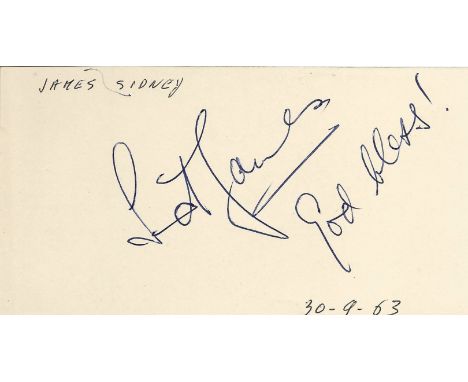 JAMES SIDNEY
Sid James
God bless!
30-9-63